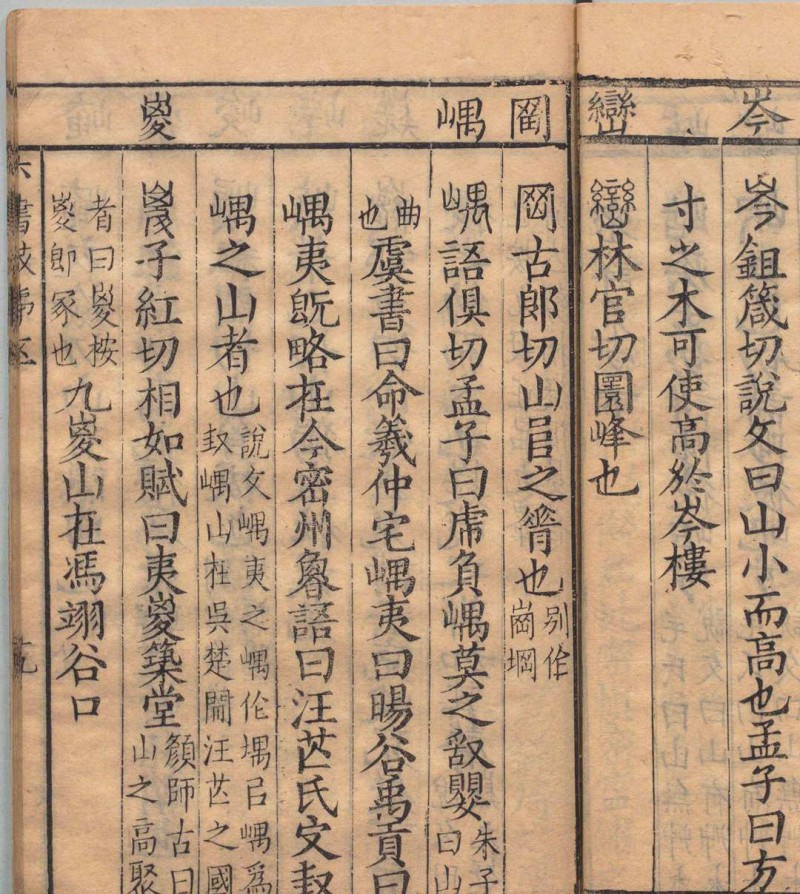 岑
巒
岑鉏箴切說文曰山小而高也孟子曰方
寸之木可使高於岑樓
巒林官切圜峰也
岡
嵎
嵏
岡古郎切山㠯之脊也
别作
崗堈
嵎語俱切孟子曰虎負嵎莫之敢嬰
朱子
曰山
曲
也
虞書曰命羲仲宅嵎夷曰暘谷禹貢曰
嵎夷旣略在今密州魯語曰汪芒氏守封
嵎之山者也
說文嵎夷之嵎作堣㠯嵎爲
封嵎山在吳楚閒汪芒之國
嵏子紅切相如賦曰夷嵏築堂
顏師古曰
山之高聚
者曰嵏按
嵏卽冢也
九嵏山在馮翊谷口
六書故